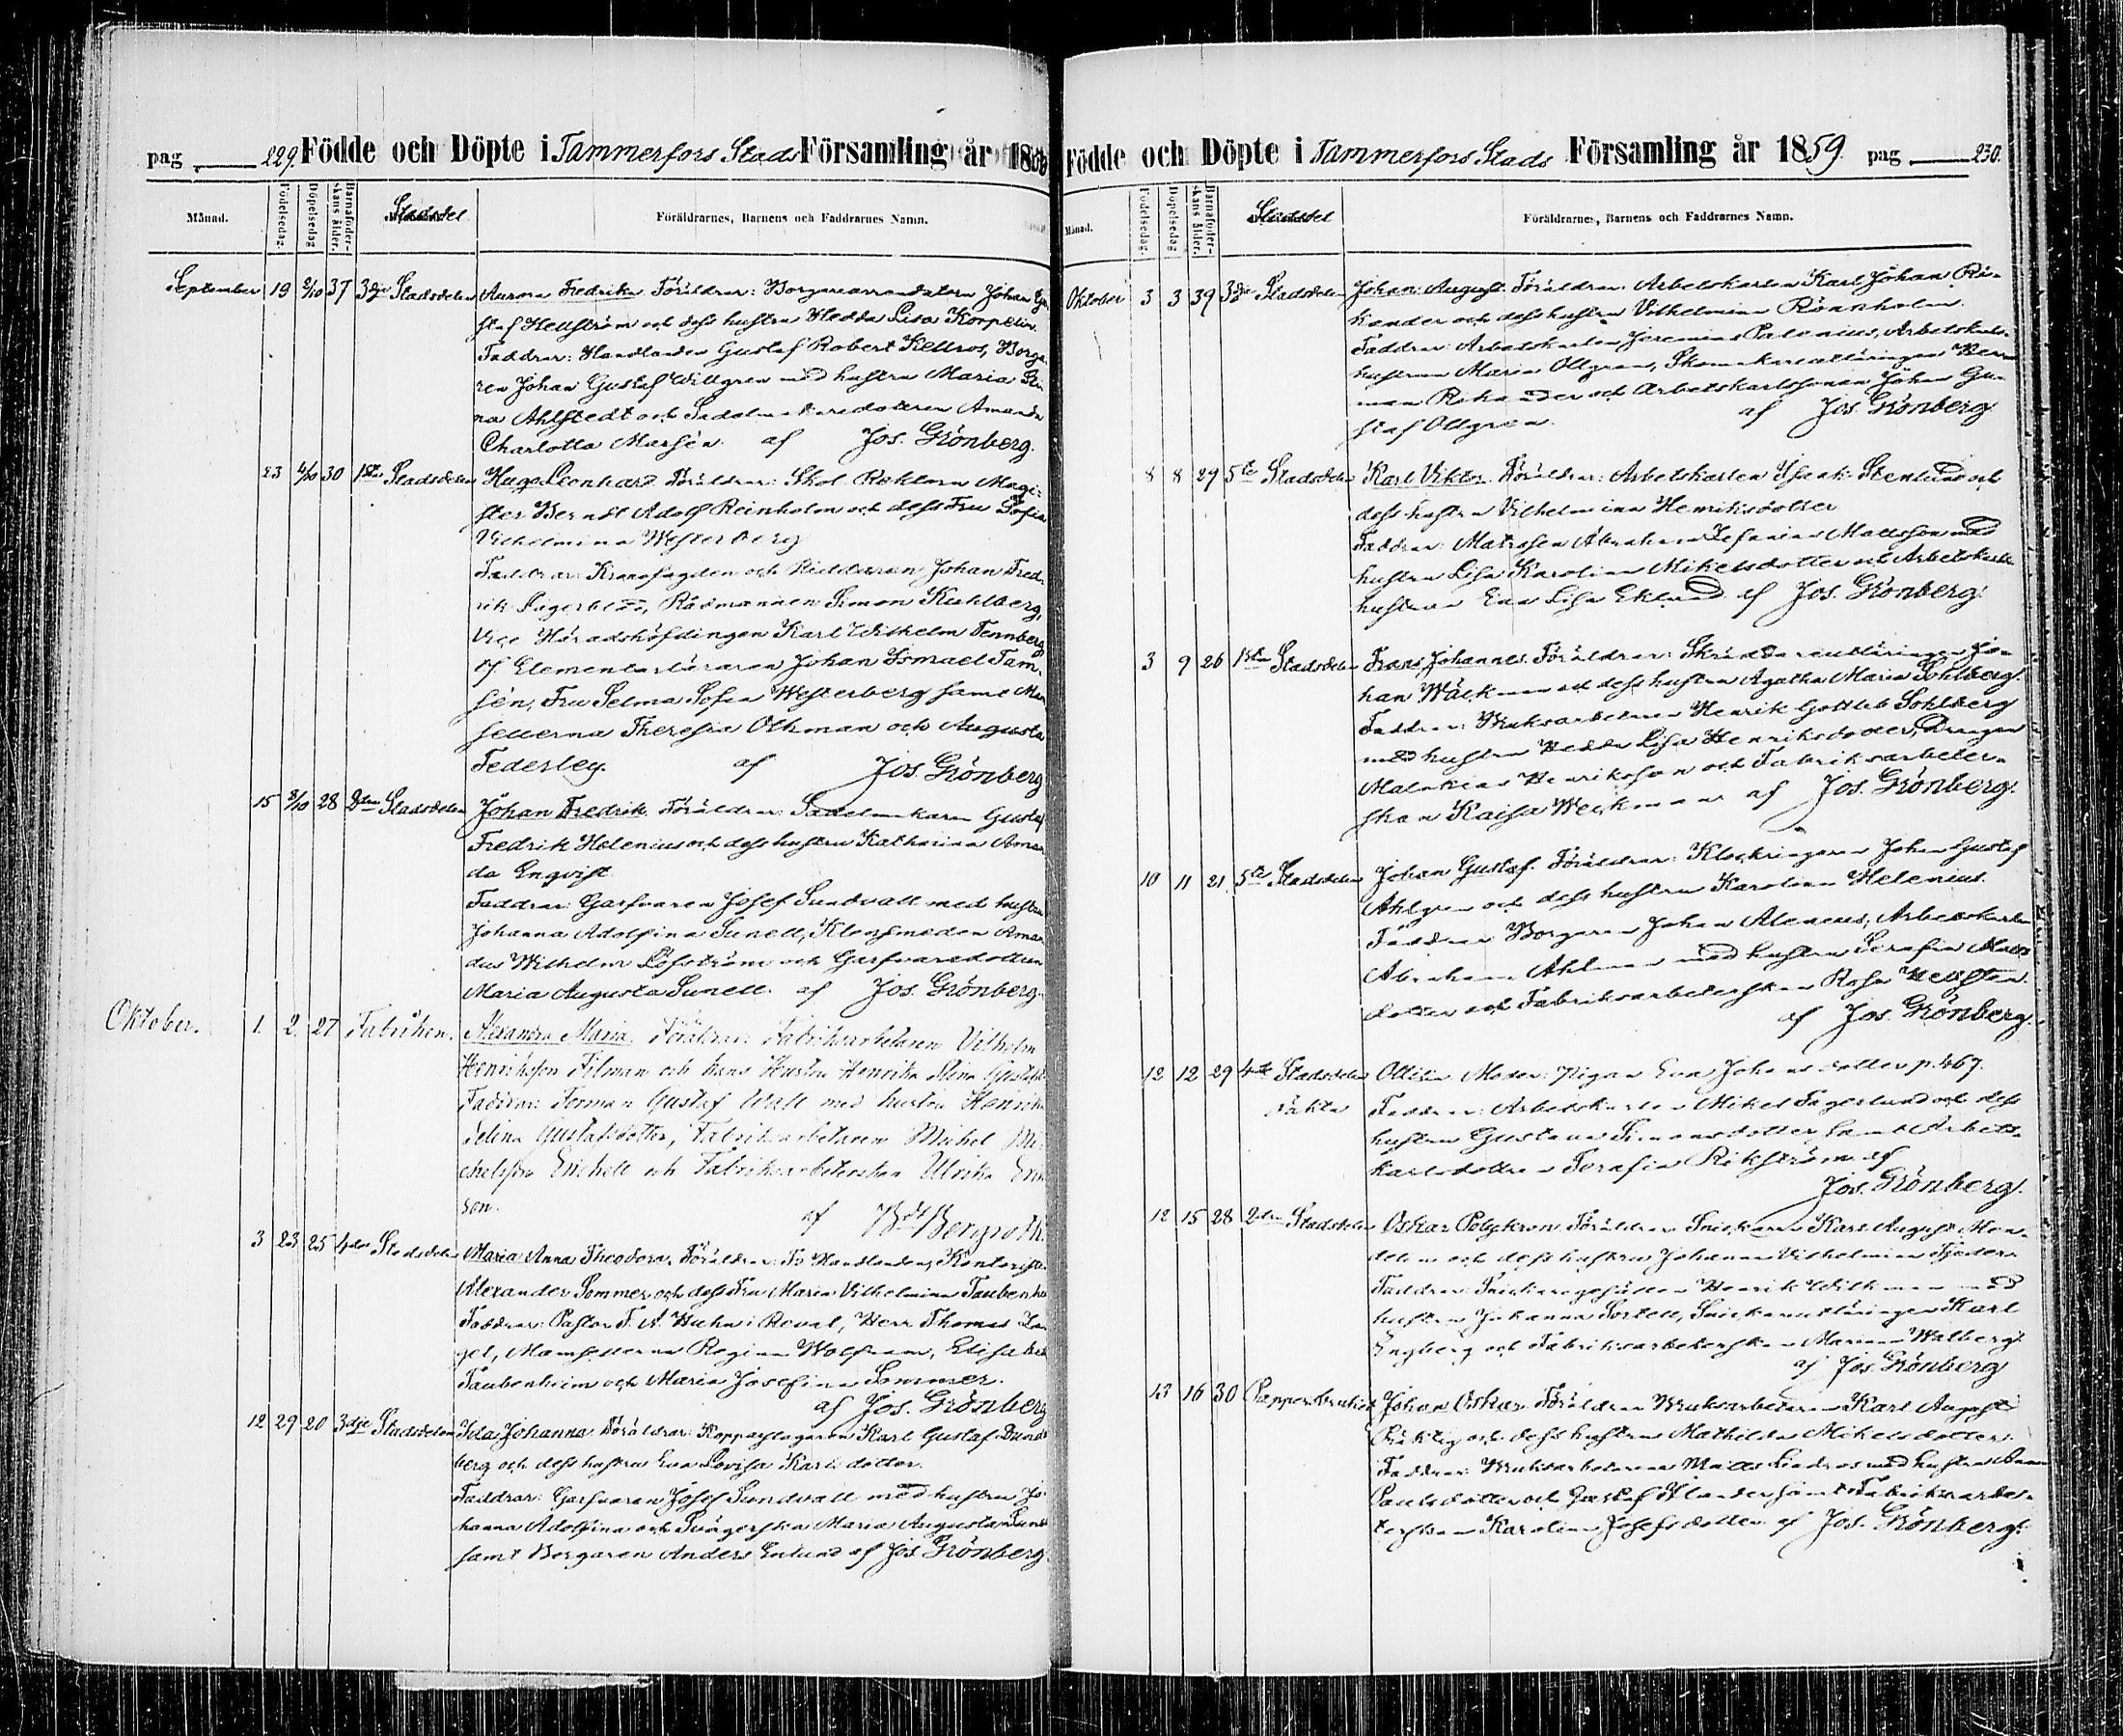 pag 229. Födde och Döpte i Tammerfors Stads Församling år 1859
Månad. Födelsedag. Döpelsedag Barnaföder-skans ålder. Stadsdel Föräldrarnes, Barnens och Faddrarnes Namn.
September 19 2/10 37 3dje Stadsdelen Aurora Fredrika Föräldrar: Borgarearrendatorn Johan Gu
staf Hellström och dess hustru Hedda Lisa Korpelin.
Faddrar: Handlanden Gustaf Robert Kellros, Borga-
ren Johan Gustaf Willgren med hustru Maria Ste
na Ahlstedt och Sadelmakaredottren Amanda
Charlotta Marsén. af Jos. Grönberg.
23 4/10 30 1sta Stadsdelen Hugo Leonhard Föräldrar: Skol Rektorn Magi-
ster Berndt Adolf Reinholm och dess Fru Sofia
Vilhelmina Westerberg
Faddrar: Kronofogden och Riddaren Johan Fred-
rik Lagerblad, Rådmannen Simon Kuhlberg,
Vice Häradshöfdingen Karl Wilhelm Tennberg
Elementarläraren Johan Ismael Tam-
sén, Fru Selma Sofia Westerberg samt Mam
sellerna Theresia Othman och Augusta
Federley. af Jos. Grönberg
15 8/10 28 2dra Stadsdelen Johan Fredrik. Föräldrar: Sadelmakaren Gustaf
Fredrik Helenius och dess hustru Katharina Aman
da Enqvist.
Faddrar: Garfvaren Josef Sundvall med hustru
Johanna Adolfina Sunell, Klensmeden Aman
dus Wilhelm Löfström och Garfvaredottren
Maria Augusta Sunell. af Jos. Grönberg.
Oktober. 1. 2. 27 Fabriken. Alexandra Maria. Föräldrar: Fabriksarbetaren Vilhelm
Henriksson Filman och hans Hustru Henrika Stina Gustafs
Faddrar: Forman Gustaf Wall med hustru Henrika
Selina Gustafsdotter, Fabriksarbetaren Michel Mi-
chelsson Enchell och Fabriksarbeterskan Ulrika
son. af Bergroth.
3 23 25 4de Stadsdelen Maria Anna Theodora. Föräldrar: Handlanden, Kontoristen
Alexander Sommer och dess Fru Maria Vilhelmina Taubenhei
Faddrar: Pastor F. A. Huhn i Reval, Herr Thomas
gel, Mamsellerna Regina Wolfram, Elisabeth
Taubenheim och Maria Josefina Sommer.
af Jos. Grönberg
12 29 20 3dje Stadsdelen Ida Johanna Föräldrar: Kopparslagaren Karl Gustaf
berg och dess hustru Eva Lovisa Karlsdotter.
Faddrar: Garfvaren Josef Sundvall med hustru Jo-
hanna Adolfina och Svägerska Maria Augusta Sunell
samt Borgaren Anders Enlund af Jos. Grönberg
Födde och Döpte i Tammerfors Stads Församling år 1859 pag 230.
Månad. Födelsedag. Döpelsedag Barnaföder-skans ålder. Stadsdel Föräldrarnes, Barnens och Faddrarnes Namn.
Oktober 3 3 39 3dje Stadsdelen Johan August. Föräldrar: Arbetskarlen Karl Johan Ri-
kander och dess hustru Vilhelmina Rönnholm.
Faddrar: Arbetskarlen Jeremias Palenius, Arbetskarls-
hustrun Maria Ollgren, Skomakarelärlingen Herr
man Rikander och Arbetskarlssonen Johan Gu-
staf Ollgren. af Jos. Grönberg
8 8 29 5te Stadsdelen Karl Viktor. Föräldrar: Arbetskarlen Isaak Stenlund och
dess hustru Vilhelmina Henriksdotter
Faddrar: Matrosen Abraham Zefanias Mattsson med
hustru Lisa Karolina Mikelsdotter och Arbetskarls
hustrun Eva Lisa Eklund af Jos. Grönberg.
3 9 26 1sta Stadsdelen Frans Johannes. Föräldrar: Skräddarelärlingen Jo-
han Wäckman och dess hustru Agatha Maria Sohlberg.
Faddrar: Bruksarbetaren Henrik Gottlieb Sohlberg
med hustru Hedda Lisa Henriksdotter, Drengen
Malakias Henriksson och Fabriksarbeter-
skan Kaisa Weckman af Jos. Grönberg.
10 11 21 5te Stadsdelen Johan Gustaf. Föräldrar: Klockringaren Johan Gustaf
Ahlgren och dess hustru Karolina Helenius.
Faddrar: Borgaren Johan Alenius, Arbetskarlen
Abraham Ahlman med hustru Serafia Matts
dotter och Fabriksarbeterskan Rosa Hellsten.
af Jos. Grönberg.
12 12 29 4de Stadsdelen Ottilia. Moder: Pigan Eva Johansdotter p. 467.
oäkta Faddrar: Arbetskarlen Mikel Fagerlund och dess
hustru Gustava Simonsdotter samt Arbets-
karlsdottren Serafia Rikström af
Jos. Grönberg.
12 15 28 2dra Stadsdelen Oskar Polykron. Föräldrar: Snickaren Karl August Mon-
delin och dess hustru Johanna Vilhelmina Fjeder
Faddrar: Snickaregesällen Henrik Willman med
hustru Johanna Sortell, Snickarelärlingen Karl
Engberg och Fabriksarbeterskan Maria Walberg.
af Jos. Grönberg
13 16 30 Pappersbruket Johan Oskar. Föräldrar: Bruksarbetaren Karl August
Räktig och dess hustru Mathilda Mikelsdotter.
Faddrar: Bruksarbetarena Matts Lindros med hustru Anna
Paulsdotter och Gustaf Ilander samt Fabriksarbe-
terskan Karolina Josefsdotter af Jos. Grönberg.